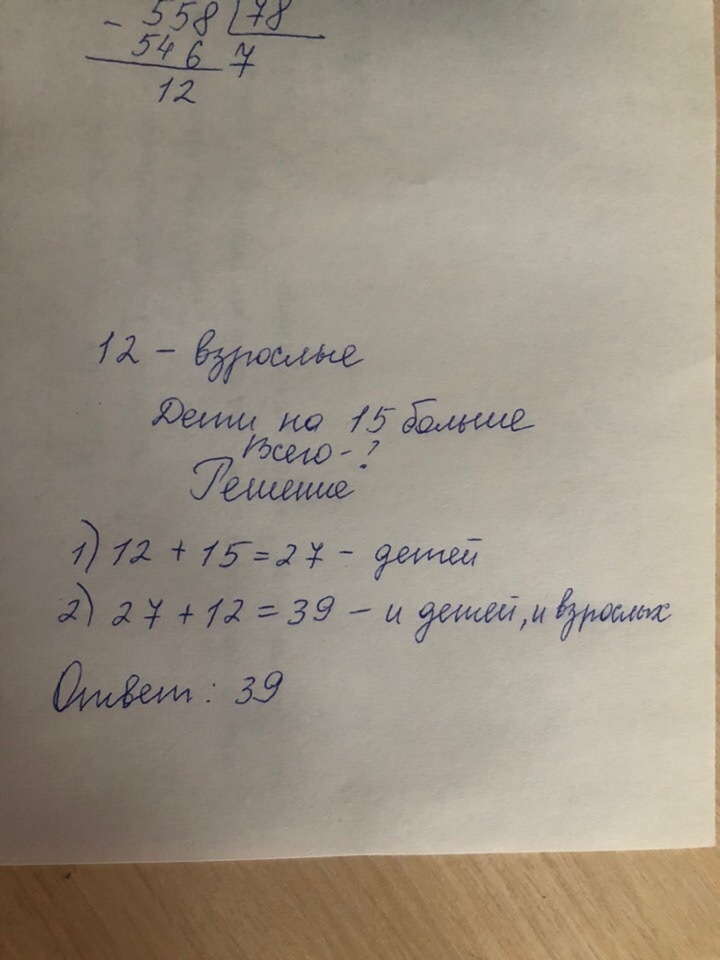 - 558 | 78
546 7
12
12 - взрослые
Дети на 15 больше
Всего - ?
Решение
1) 12 + 15 = 27 - детей
2) 27 + 12 = 39 - и детей, и взрослых
Ответ: 39